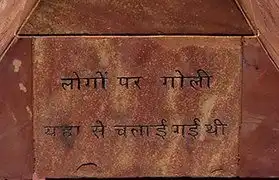 लोगों पर गोली
यहा से चलाई गई थी